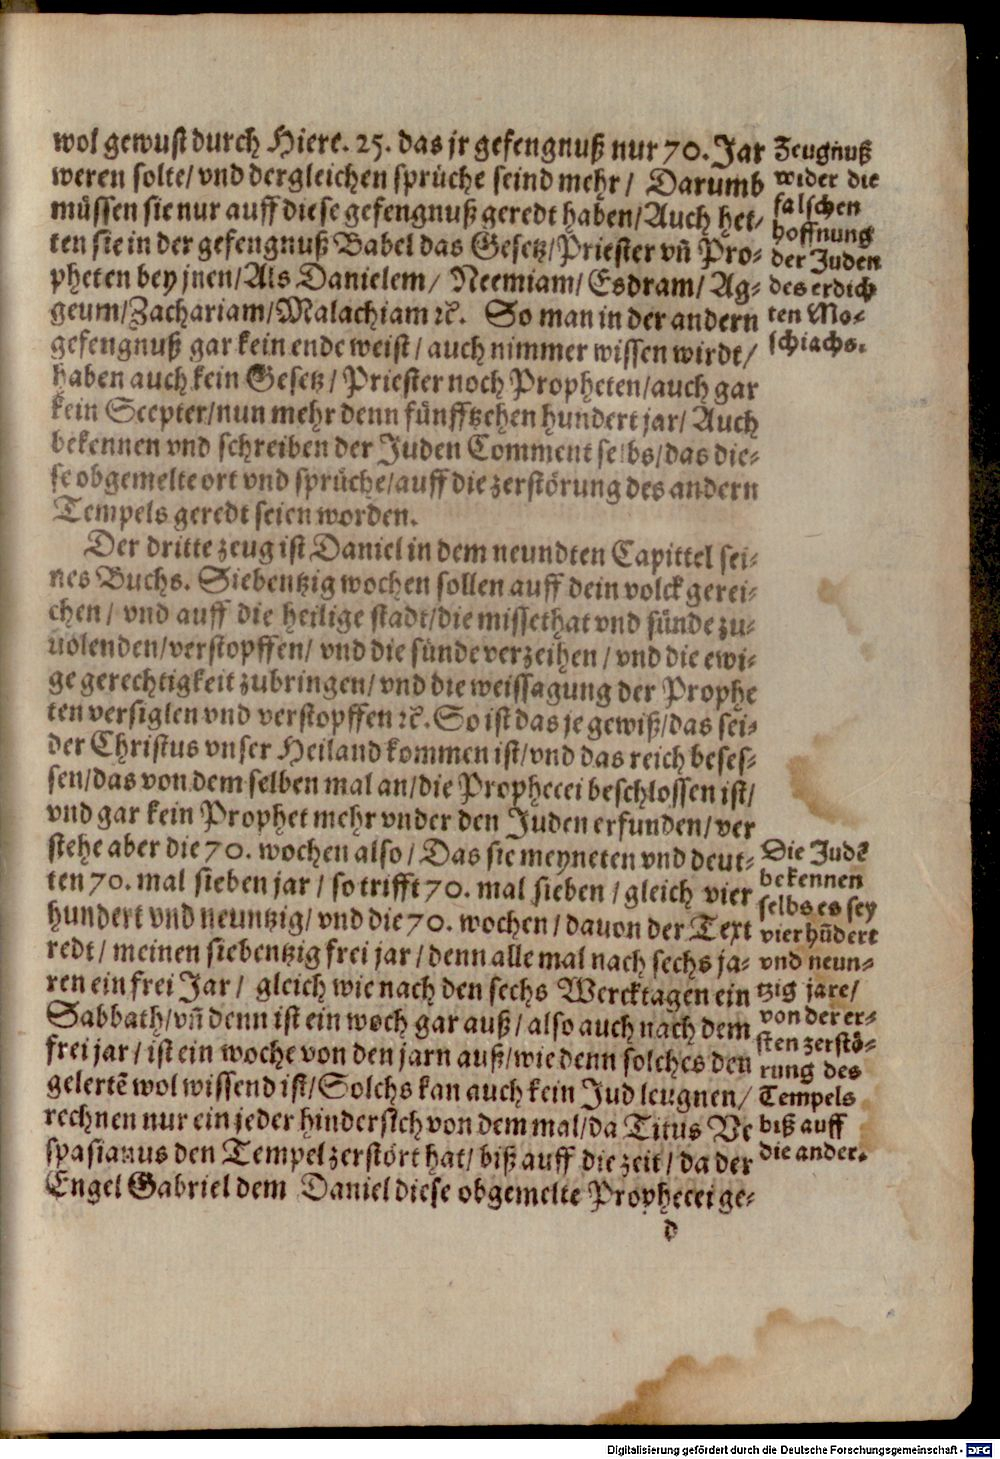 wol gewust durch Hiere. 25. das jr gefengnuß nur 70. Jar
weren solte/ vnd dergleichen sprüche seind mehr/ Darumb
müssen sie nur auff diese gefengnuß geredt haben/ Auch het-
ten sie in der gefengnuß Babel das Gesetz/ Priester vñ Pro-
pheten bey jnen/ Als Danielem/ Neemiam/ Esdram/ Ag-
geum/ Zachariam/ Malachiam ꝛc. So man in der andern
gefengnuß gar kein ende weist/ auch nimmer wissen wirdt/
haben auch kein Gesetz/ Priester noch Propheten/ auch gar
kein Scepter/ nun mehr denn fünfftzehen hundert jar/ Auch
bekennen vnd schreiben der Juden Comment selbs/ das die-
se obgemelte ort vnd sprüche/ auff die zerstörung des andern
Tempels geredt seien worden.
Der dritte zeug ist Daniel in dem neundten Capittel sei-
nes Buchs. Siebentzig wochen sollen auff dein volck gerei-
chen/ vnd auff die heilige stadt/ die missethat vnd sünde zu-
uolenden/ verstopffen/ vnd die sünde verzeihen/ vnd die ewi-
ge gerechtigkeit zubringen/ vnd die weissagung der Prophe
ten versiglen vnd verstopffen ꝛc. So ist das je gewiß/ das sei-
der Christus vnser Heiland kommen ist/ vnd das reich beses-
sen/ das von dem selben mal an/ die Prophecei beschlossen ist/
vnd gar kein Prophet mehr vnder den Juden erfunden/ ver
stehe aber die 70. wochen also/ Das sie meyneten vnd deut-
ten 70. mal sieben jar/ so trifft 70. mal sieben/ gleich vier
hundert vnd neuntzig/ vnd die 70. wochen/ dauon der Text
redt/ meinen siebentzig frei jar/ denn alle mal nach sechs ja-
ren ein frei Jar/ gleich wie nach den sechs Wercktagen ein
Sabbath/ vñ denn ist ein woch gar auß/ also auch nach dem
frei jar/ ist ein woche von den jarn auß/ wie denn solches den
gelertē wol wissend ist/ Solchs kan auch kein Jud leugnen/
rechnen nur ein jeder hindersich von dem mal/ da Titus Ve
spasianus den Tempel zerstört hat/ biß auff die zeit/ da der
Engel Gabriel dem Daniel diese obgemelte Prophecei ge-
d
Zeugnuß
wider die
falschen
hoffnung
der Juden
des erdich
ten Mo-
schiachs.
Die Judē
bekennen
selbs es sey
vier hūdert
vnd neun-
tzig jare/
von der er-
sten zerstö-
rung des
Tempels
biß auff
die ander.
Digitalisierung gefördert durch die Deutsche Forschungsgemeinschaft - DFG